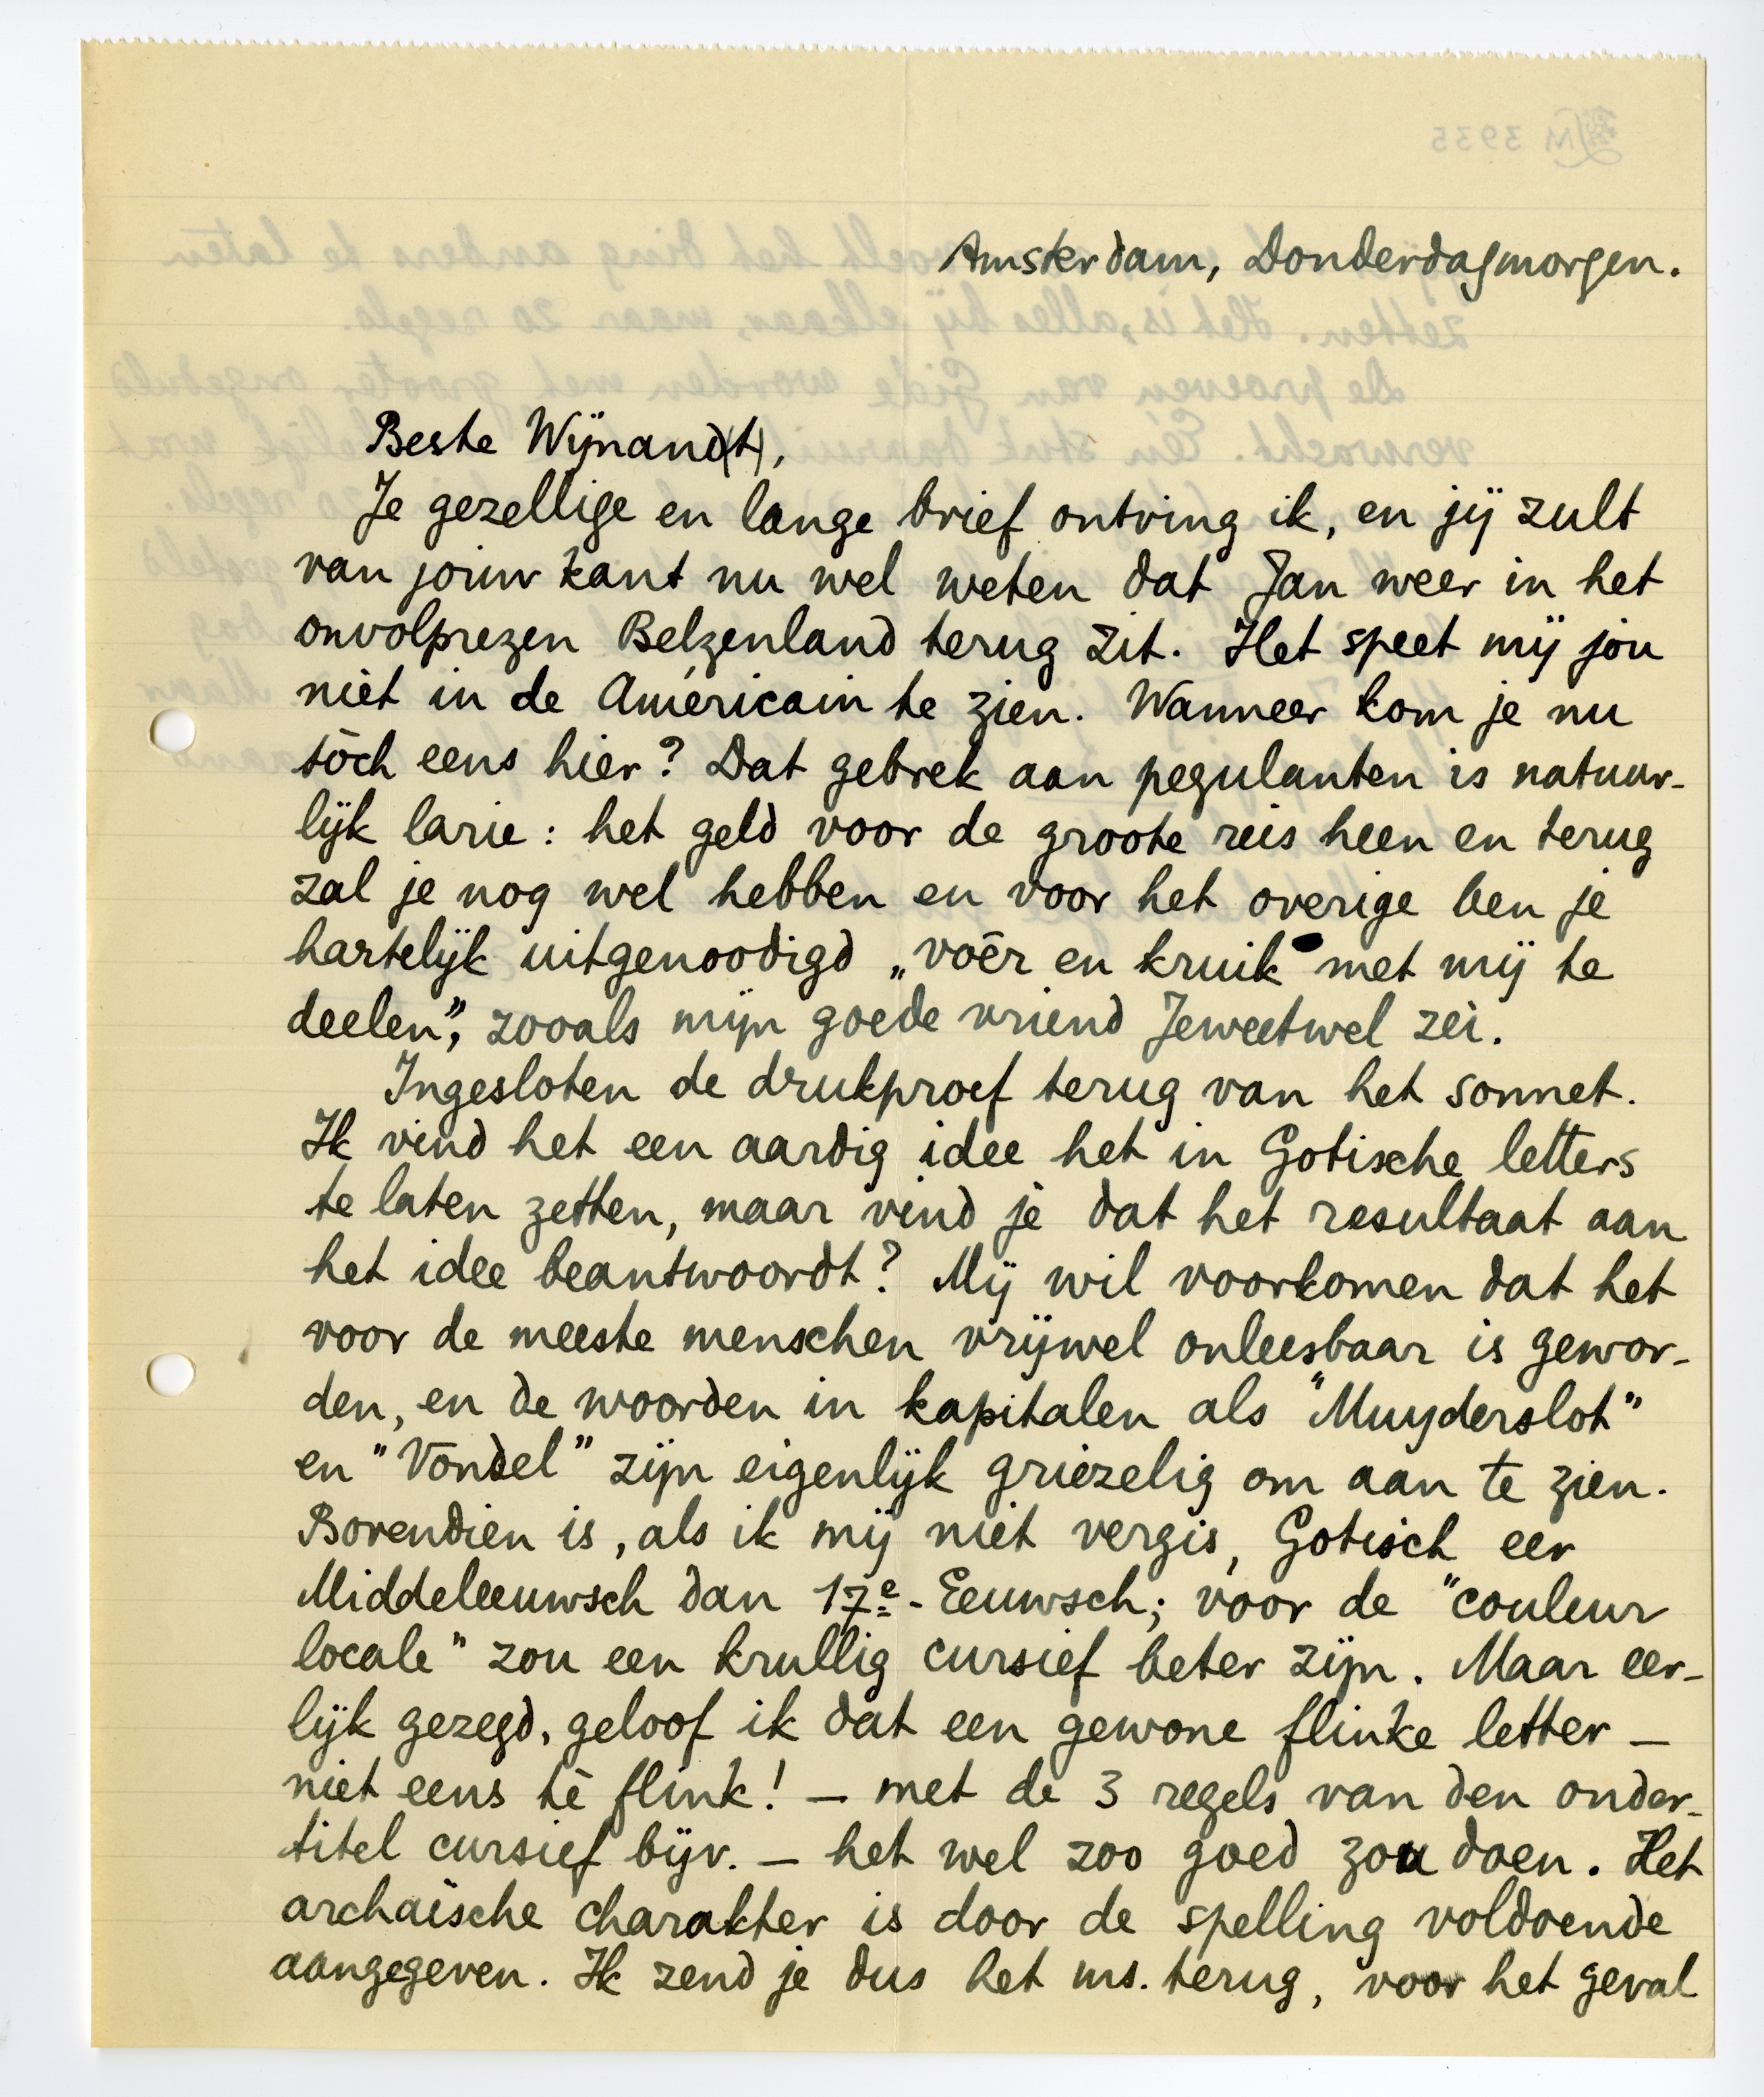 Amsterdam, Donderdagmorgen.
Beste Wijnand(t),
Je gezellige en lange brief ontving ik, en jij zult
van jouw kant nu wel weten dat Jan weer in het
onvolprezen Belzenland terug zit. Het speet mij jou
niet in de Américain te zien. Wanneer kom je nu
tòch eens hier? Dat gebrek aan pegulanten is natuur-
lijk larie: het geld voor de groote reis heen en terug
zal je nog wel hebben en voor het overige ben je
hartelijk uitgenoodigd „voêr en kruik met mij te
deelen”, zooals mijn goede vriend Jeweetwel zei.
Ingesloten de drukproef terug van het sonnet.
Ik vind het een aardig idee het in Gotische letters
te laten zetten, maar vind je dat het resultaat aan
het idee beantwoordt? Mij wil voorkomen dat het
voor de meeste menschen vrijwel onleesbaar is gewor-
den, en de woorden in kapitalen als "Muyderslot"
en "Vondel" zijn eigenlijk griezelig om aan te zien.
Bovendien is, als ik mij niet vergis, Gotisch eer
Middeleeuwsch dan 17e-Eeuwsch; voor de "couleur
locale" zou een krullig cursief beter zijn. Maar eer-
lijk gezegd, geloof ik dat een gewone flinke letter —
niet eens tè flink! — met de 3 regels van den onder-
titel cursief bijv. — het wel zoo goed zou doen. Het
archaïsche charakter is door de spelling voldoende
aangegeven. Ik zend je dus het ms. terug, voor het geval